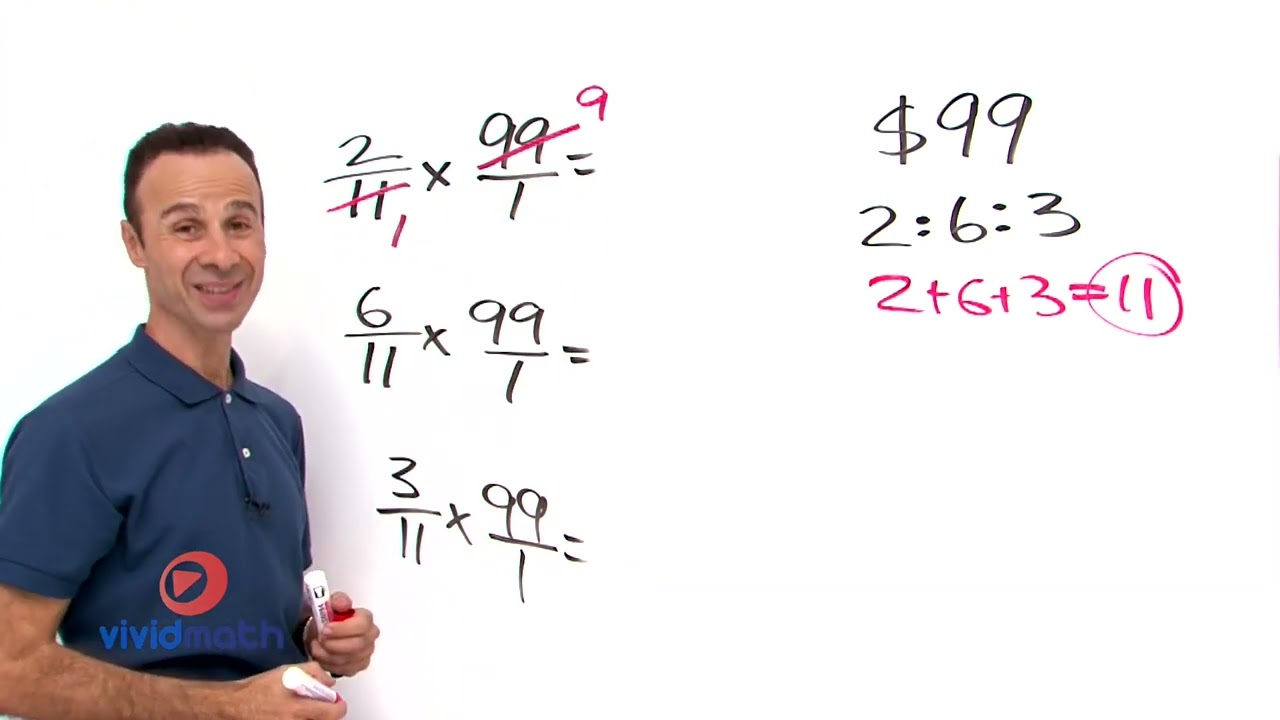 2/11 1 × 99/1 9 =
6/11 × 99/1 =
3/11 × 99/1 =
$99
2:6:3
2+6+3=11
vividmath